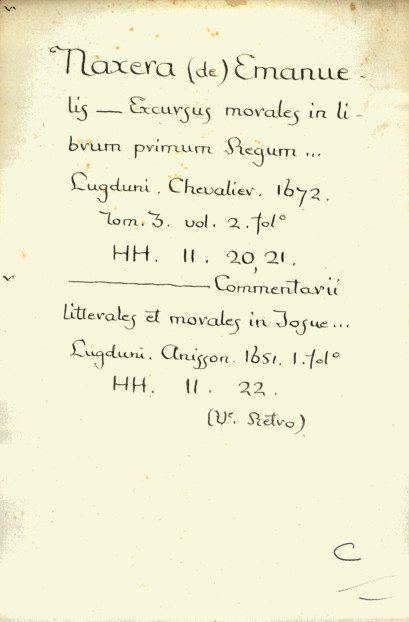 Naxera (de) Emanue-
lis — Excursus morales in li-
brum primum Regum ...
Lugduni. Chevalier. 1672.
Tom. 3. vol. 2. folº
HH. 11. 20, 21.
——— Commentarii
litterales et morales in Josue ...
Lugduni. Anisson. 1651. 1. folº
HH. 11. 22.
(Vº. Retro)
C